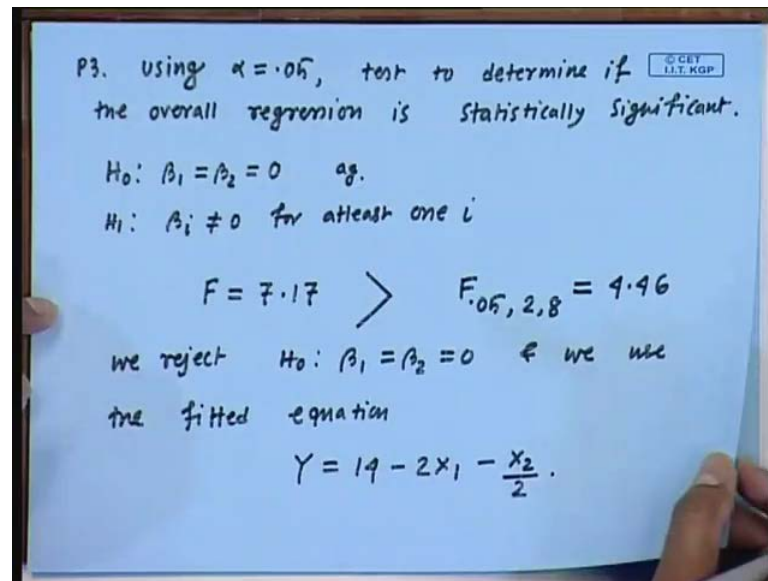 P3. Using α = .05, test to determine if
© CET
I.I.T. KGP
the overall regression is statistically significant.
H₀: β₁ = β₂ = 0 ag.
H₁: βᵢ ≠ 0 for atleast one i
F = 7.17 > F.₀₅, ₂, ₈ = 4.46
we reject H₀: β₁ = β₂ = 0 & we use
the fitted equation
Y = 14 - 2x₁ - x₂/2 .